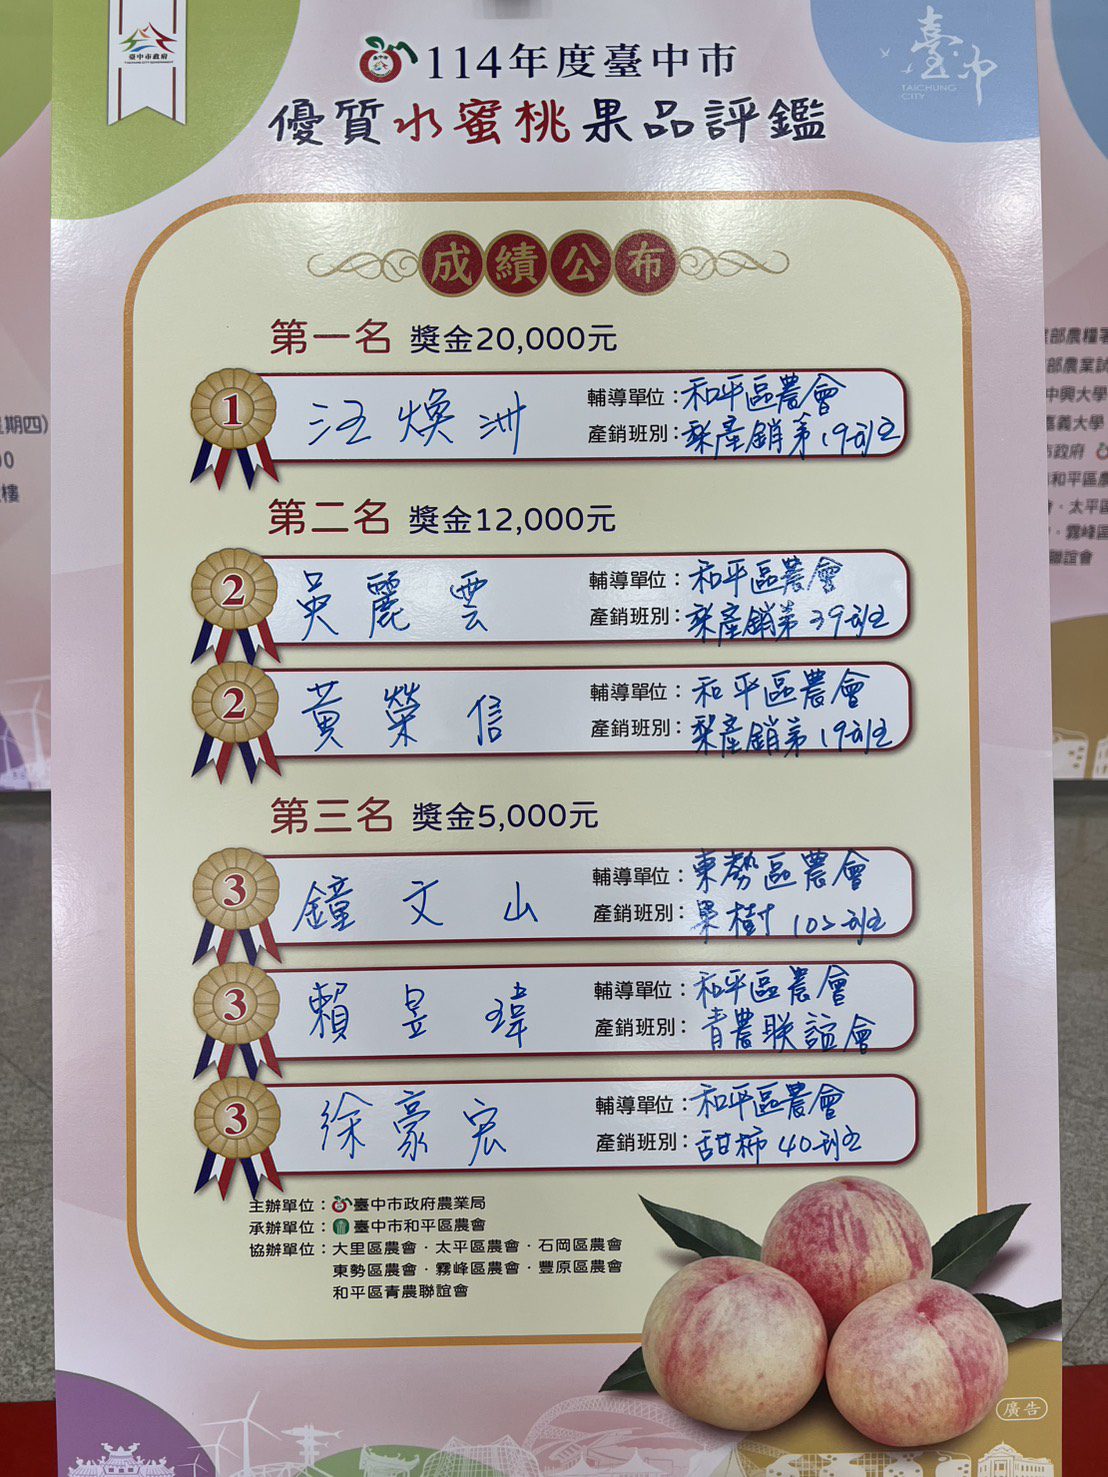 臺中市政府
TAICHUNG CITY GOVERNMENT
臺中
TAICHUNG
CITY
114年度臺中市
優質水蜜桃果品評鑑
成績公布
第一名 獎金20,000元
1 汪煥洲
輔導單位：和平區農會
產銷班別：梨產銷第19班
第二名 獎金12,000元
2 吳麗雲
輔導單位：和平區農會
產銷班別：梨產銷第39班
2 黃榮信
輔導單位：和平區農會
產銷班別：梨產銷第19班
第三名 獎金5,000元
3 鐘文山
輔導單位：東勢區農會
產銷班別：果樹102班
3 賴昱瑋
輔導單位：和平區農會
產銷班別：青農联誼會
3 徐豪宏
輔導單位：和平區農會
產銷班別：甜柿40班
主辦單位：臺中市政府農業局
承辦單位：臺中市和平區農會
協辦單位：大里區農會．太平區農會．石岡區農會
東勢區農會．霧峰區農會．豐原區農會
和平區青農聯誼會
廣告
期四)
樓
部農糧署
部農業試
中興大學
嘉義大學
市政府
和平區農
．太平區
．霧峰區
聯誼會